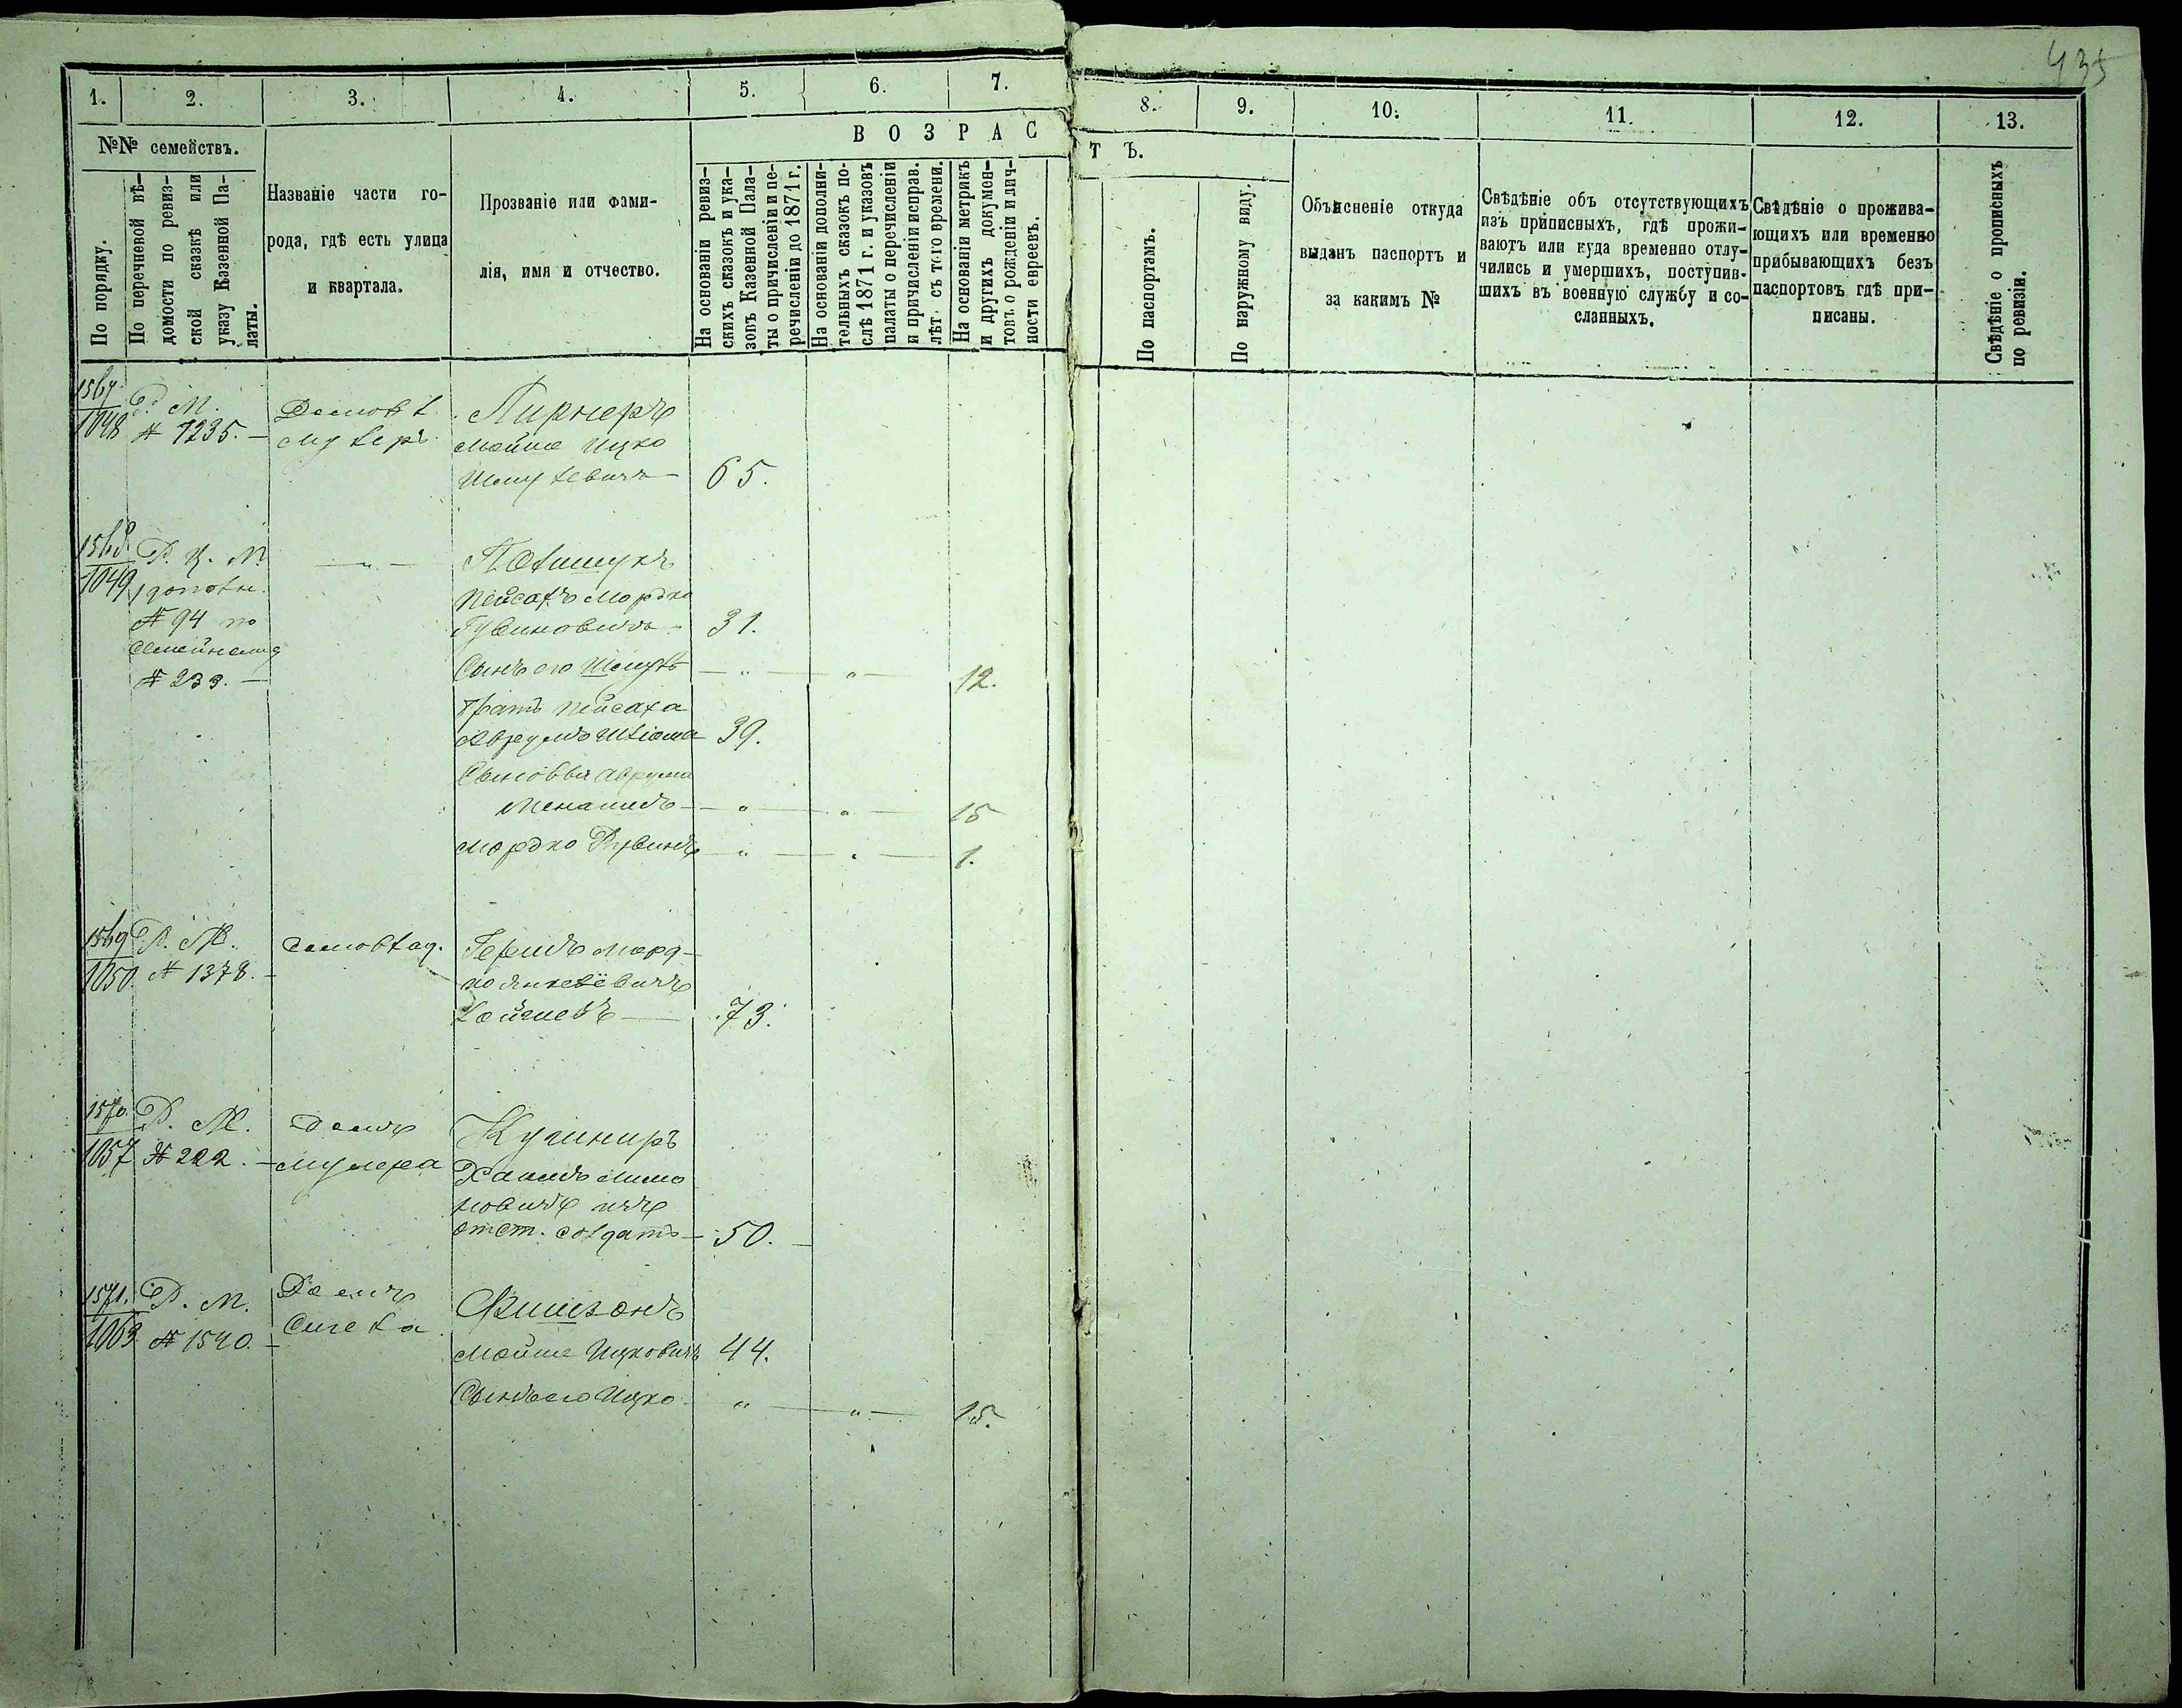 435
1. 2. 3. 4. 5. 6. 7. 8. 9. 10. 11. 12. 13.
ВОЗРАСТЪ.
№№ семействъ.
По порядку.
По перечневой вѣ-
домости по ревиз-
ской сказкѣ или
указу Казенной Па-
латы.
Названіе части го-
рода, гдѣ есть улица
и квартала.
Прозваніе или фами-
лія, имя и отчество.
На основаніи ревиз-
скихъ сказокъ и ука-
зовъ Казенной Пала-
ты о причисленіи и пе-
речисленіи до 1871 г.
На основаніи дополни-
тельныхъ сказокъ по-
слѣ 1871 г. и указовъ
палаты о перечисленіи
и причисленіи исправ.
лѣт. съ того времени.
На основаніи метрикъ
и другихъ докумен-
товъ о рожденіи и лич-
ности евреевъ.
По паспортамъ.
По наружному виду.
Объясненіе откуда
выданъ паспортъ и
за какимъ №
Свѣдѣніе объ отсутствующихъ
изъ приписныхъ, гдѣ прожи-
ваютъ или куда временно отлу-
чились и умершихъ, поступив-
шихъ въ военную службу и со-
сланныхъ.
Свѣдѣніе о прожива-
ющихъ или временно
прибывающихъ безъ
паспортовъ гдѣ при-
писаны.
Свѣдѣніе о прописныхъ
по ревизіи.
1567. Р. М. Пирнеръ
1048 № 1235. Мойше Ицко
Шмулевичъ 65.
1568. Р. К. М. — „ — Полишукъ
1049 дополн. Пейсахъ Мордко
№ 94 по Рувиновичъ 31.
семейному
№ 239. — Сынъ его Шмуль — „ — „ — 12.
Братъ Пейсаха
Аврумъ Шліома 39.
Сыновья Аврума
Менашъ — „ — „ — 15
Мордко Рувинъ — „ — „ — 1.
1569 Р. М. Гершъ Морд-
1050. № 1378. ко Янкелёвичъ
73.
1570. Р. М. Домъ Кушниръ
1057 № 222. — Мулера Хаимъ
отст. солдатъ — 50. —
1571. Р. М. Домъ Фишзонъ
1063 № 1540. — Сигела
Мойше Ицковичъ 44.
Сынъ его Ицко „ — „ — 15.